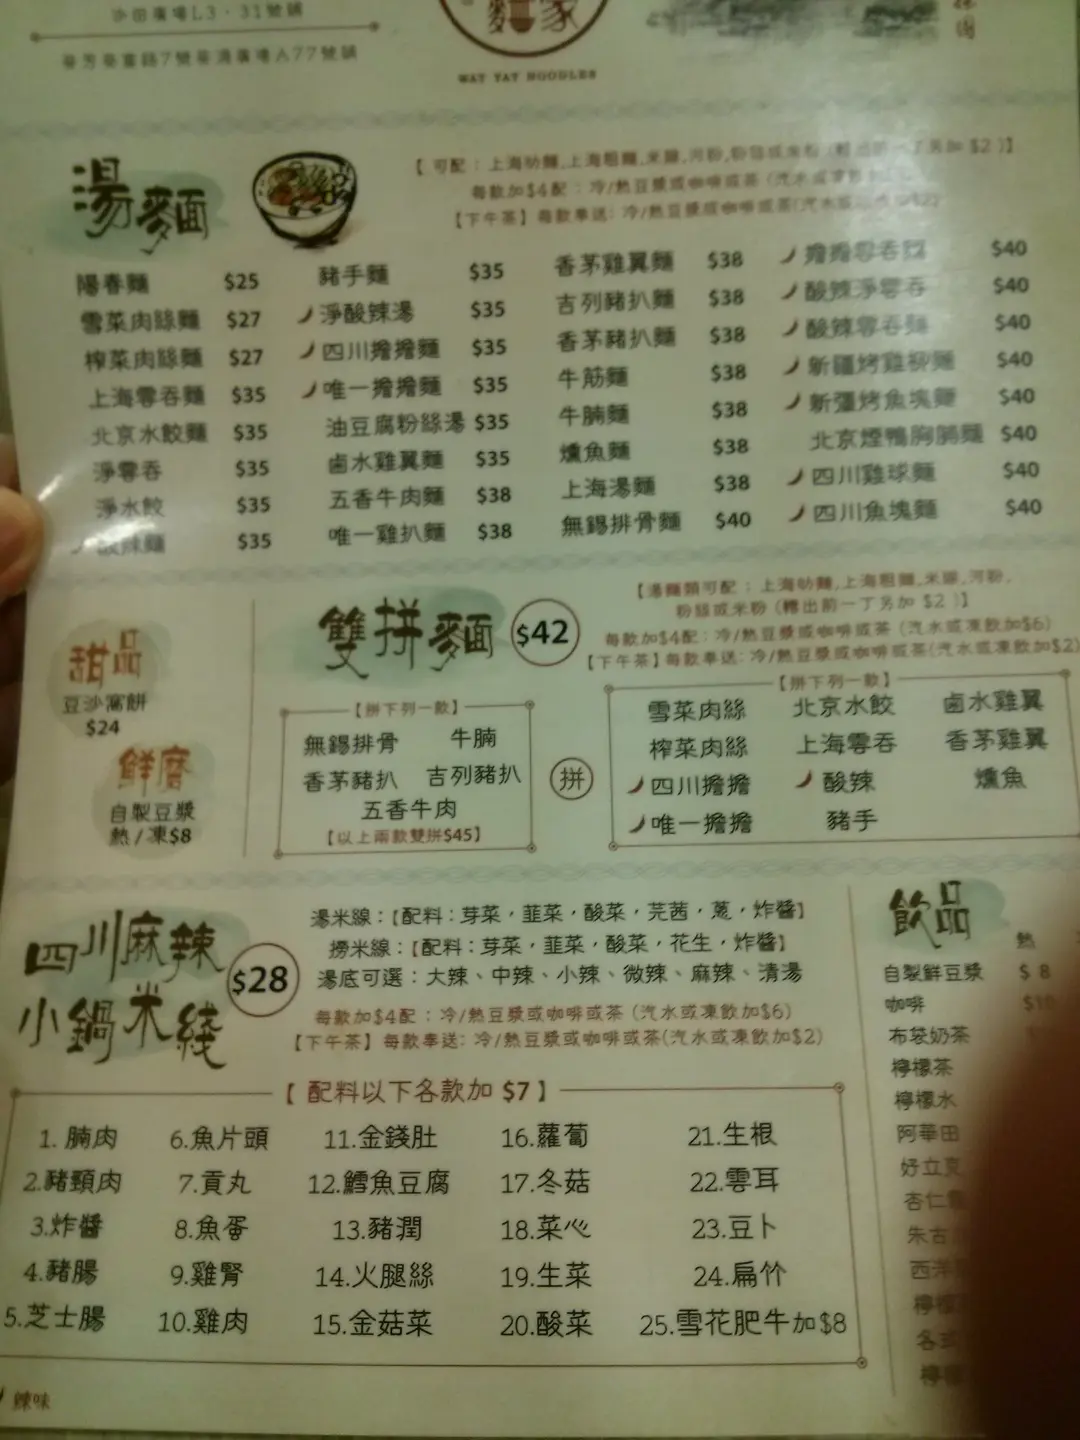 沙田廣場L3·31號舖
葵芳葵富路7號葵涌廣場A77號舖
麵家
WAY YAT NOODLES
湯麵
【可配:上海幼麵,上海粗麵,米線,河粉,粉絲或米粉(轉出前一丁另加 $2)】
每款加$4配:冷/熱豆漿或咖啡或茶(汽水或凍飲
【下午茶】每款奉送:冷/熱豆漿或咖啡或茶(汽水或凍飲加$2)
陽春麵 $25
雪菜肉絲麵 $27
榨菜肉絲麵 $27
上海雲吞麵 $35
北京水餃麵 $35
淨雲吞 $35
淨水餃 $35
酸辣麵 $35
豬手麵 $35
淨酸辣湯 $35
四川擔擔麵 $35
唯一擔擔麵 $35
油豆腐粉絲湯 $35
鹵水雞翼麵 $35
五香牛肉麵 $38
唯一雞扒麵 $38
香茅雞翼麵 $38
吉列豬扒麵 $38
香茅豬扒麵 $38
牛筋麵 $38
牛腩麵 $38
燻魚麵 $38
上海湯麵 $38
無錫排骨麵 $40
擔擔雲吞麵 $40
酸辣淨雲吞 $40
酸辣雲吞麵 $40
新疆烤雞柳麵 $40
新彊烤魚塊麵 $40
北京煙鴨胸脯麵 $40
四川雞球麵 $40
四川魚塊麵 $40
甜品
豆沙窩餅
$24
鮮磨
自製豆漿
熱/凍$8
雙拼麵 $42
【湯麵類可配:上海幼麵,上海粗麵,米線,河粉,
粉絲或米粉(轉出前一丁另加 $2)】
每款加$4配:冷/熱豆漿或咖啡或茶(汽水或凍飲加$6)
【下午茶】每款奉送:冷/熱豆漿或咖啡或茶(汽水或凍飲加$2)
【拼下列一款】
無錫排骨 牛腩
香茅豬扒 吉列豬扒
五香牛肉
【以上兩款雙拼$45】
拼
【拼下列一款】
雪菜肉絲 北京水餃 鹵水雞翼
榨菜肉絲 上海雲吞 香茅雞翼
四川擔擔 酸辣 燻魚
唯一擔擔 豬手
四川麻辣
小鍋米綫
$28
湯米線:【配料:芽菜,韮菜,酸菜,芫茜,蔥,炸醬】
撈米線:【配料:芽菜,韮菜,酸菜,花生,炸醬】
湯底可選:大辣、中辣、小辣、微辣、麻辣、清湯
每款加$4配:冷/熱豆漿或咖啡或茶(汽水或凍飲加$6)
【下午茶】每款奉送:冷/熱豆漿或咖啡或茶(汽水或凍飲加$2)
【配料以下各款加 $7】
1.腩肉 6.魚片頭 11.金錢肚 16.蘿蔔 21.生根
2.豬頸肉 7.貢丸 12.鱈魚豆腐 17.冬菇 22.雲耳
3.炸醬 8.魚蛋 13.豬潤 18.菜心 23.豆卜
4.豬腸 9.雞腎 14.火腿絲 19.生菜 24.扁竹
5.芝士腸 10.雞肉 15.金菇菜 20.酸菜 25.雪花肥牛加$8
飲品
熱
自製鮮豆漿 $8
咖啡 $10
布袋奶茶
檸檬茶
檸檬水
阿華田
好立克
杏仁
朱古
西洋
檸檬
各式
檸檬
辣味